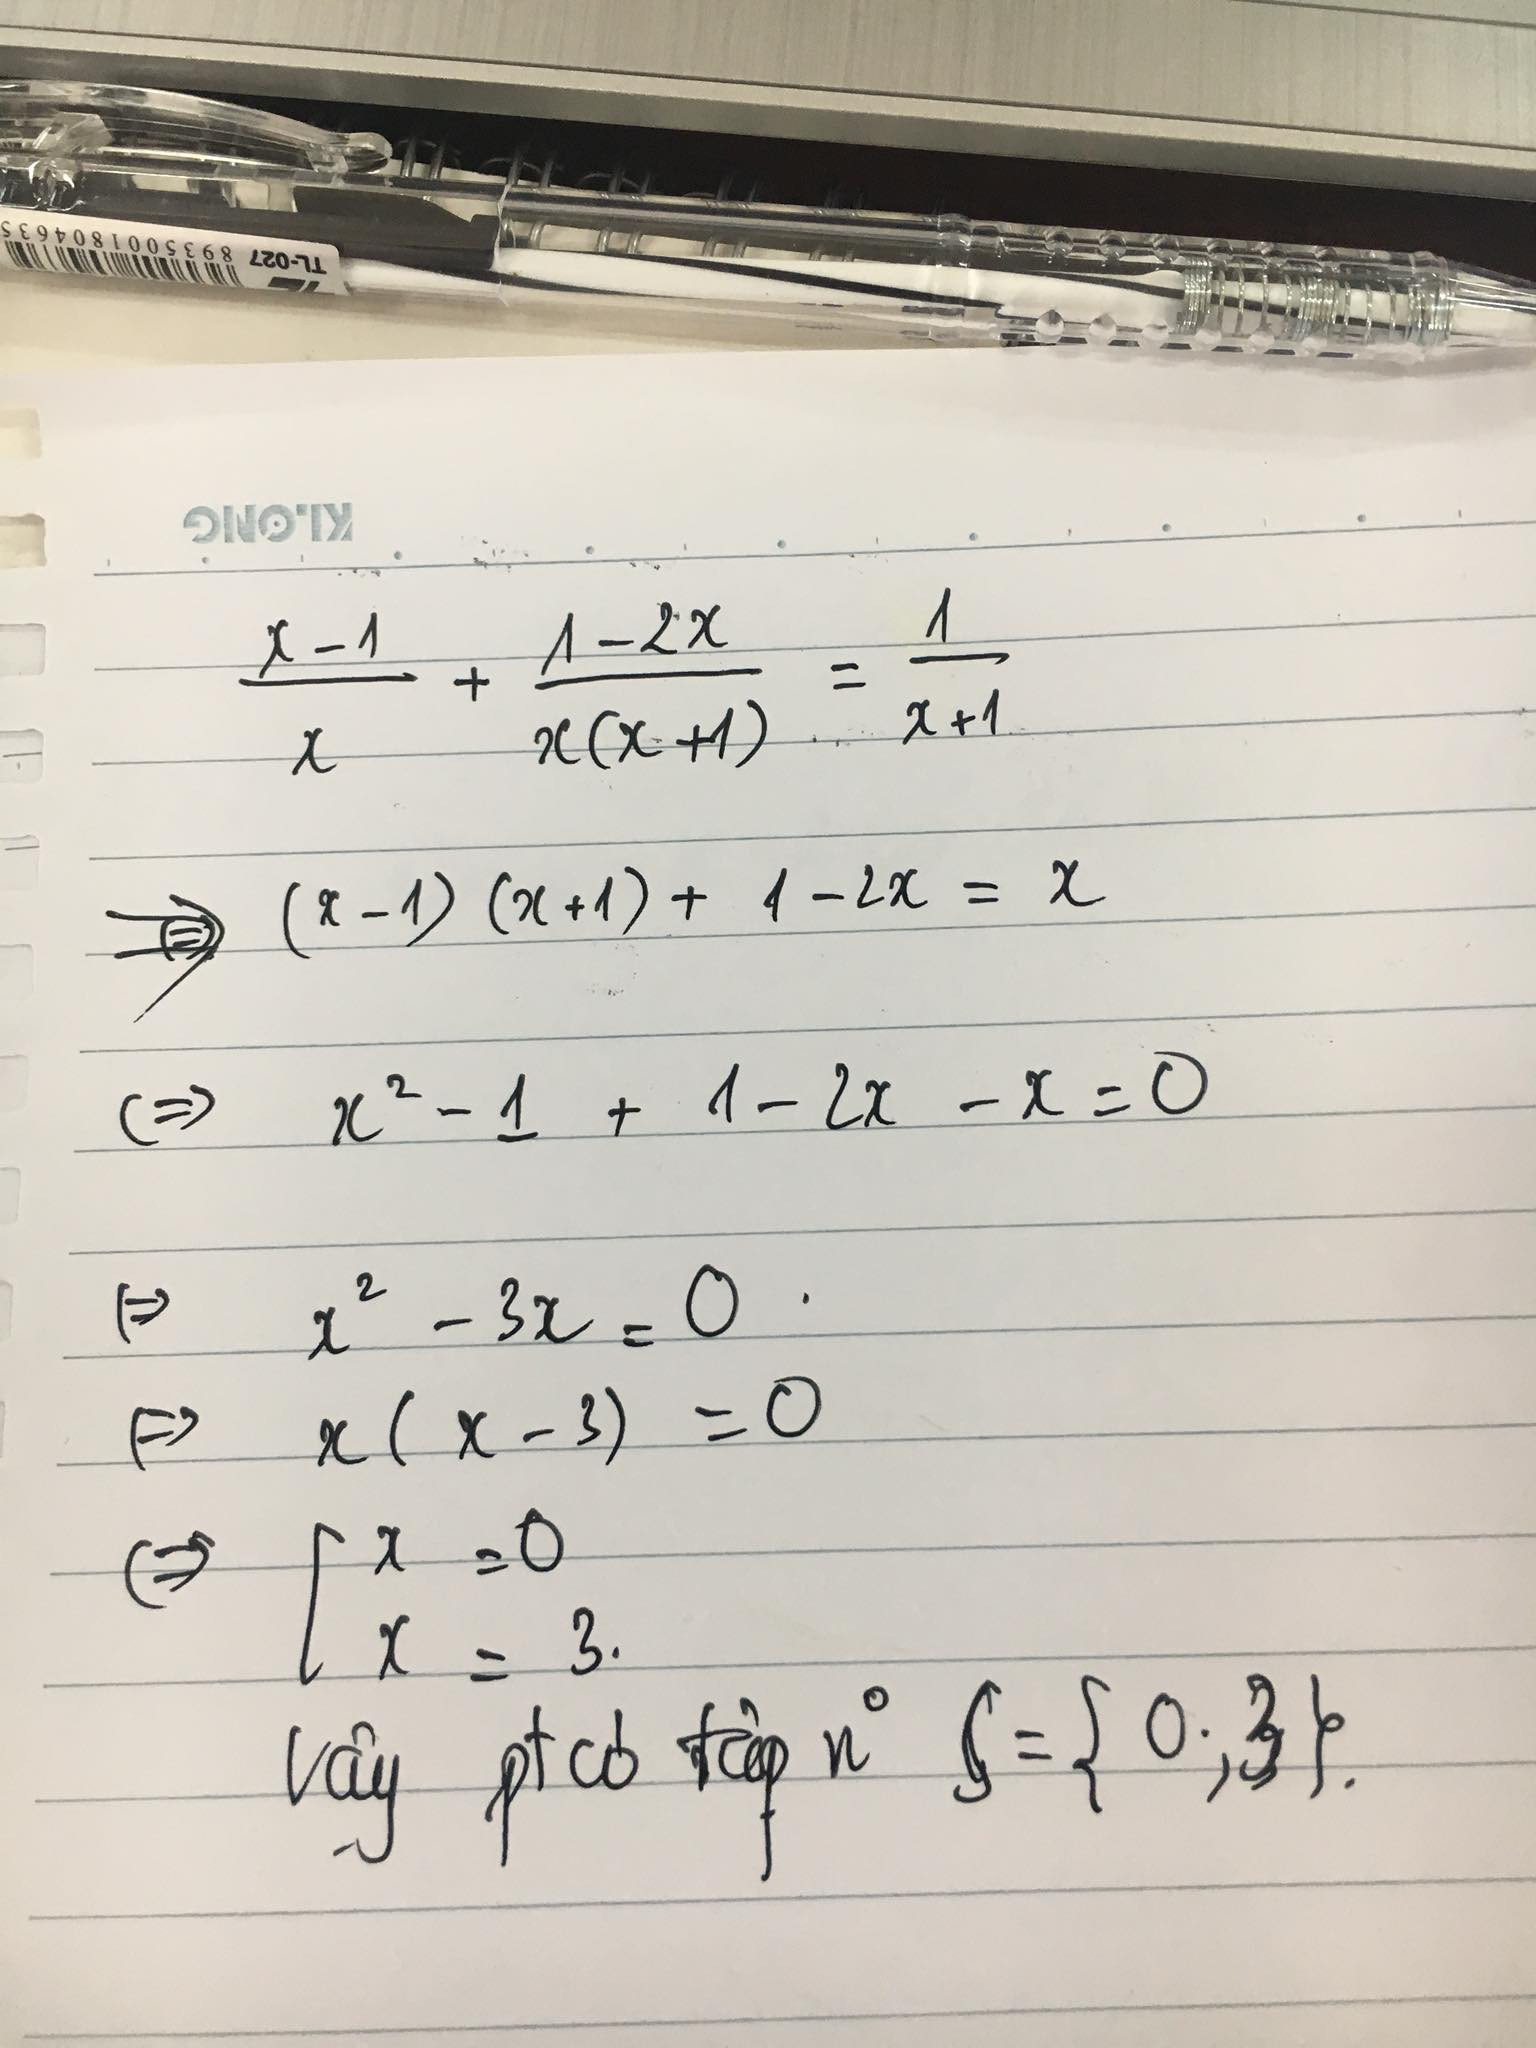 8935001804635
TL-027
KLONG
x-1/x + 1-2x/x(x+1) = 1/x+1
⇒ (x-1) (x+1) + 1-2x = x
⇔ x² - 1 + 1 - 2x - x = 0
⇔ x² - 3x = 0.
⇔ x(x-3) = 0
⇔ [ x = 0
x = 3.
Vậy pt có tập n° S = {0; 3}.